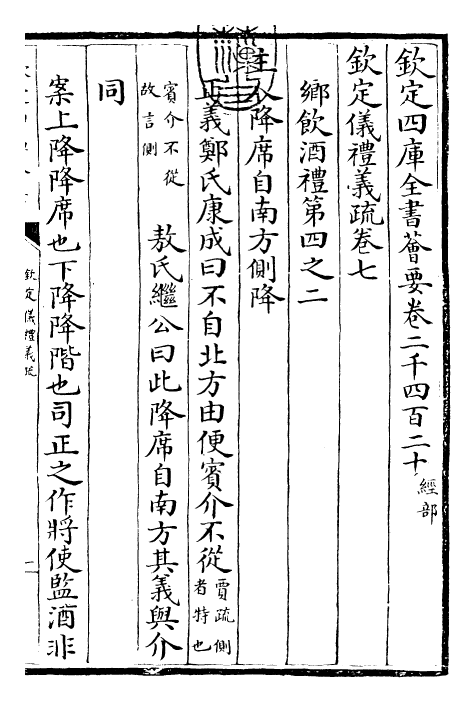 欽定四庫全書薈要卷二千四百二十 經部
欽定儀禮義疏卷七
鄉飲酒禮第四之二
主人降席自南方側降
正義鄭氏康成曰不自北方由便賓介不從 賈疏側者特也
賓介不從故言側 敖氏繼公曰此降席自南方其義與介
同
案上降降席也下降降階也司正之作將使監酒非
欽定儀禮義疏
一